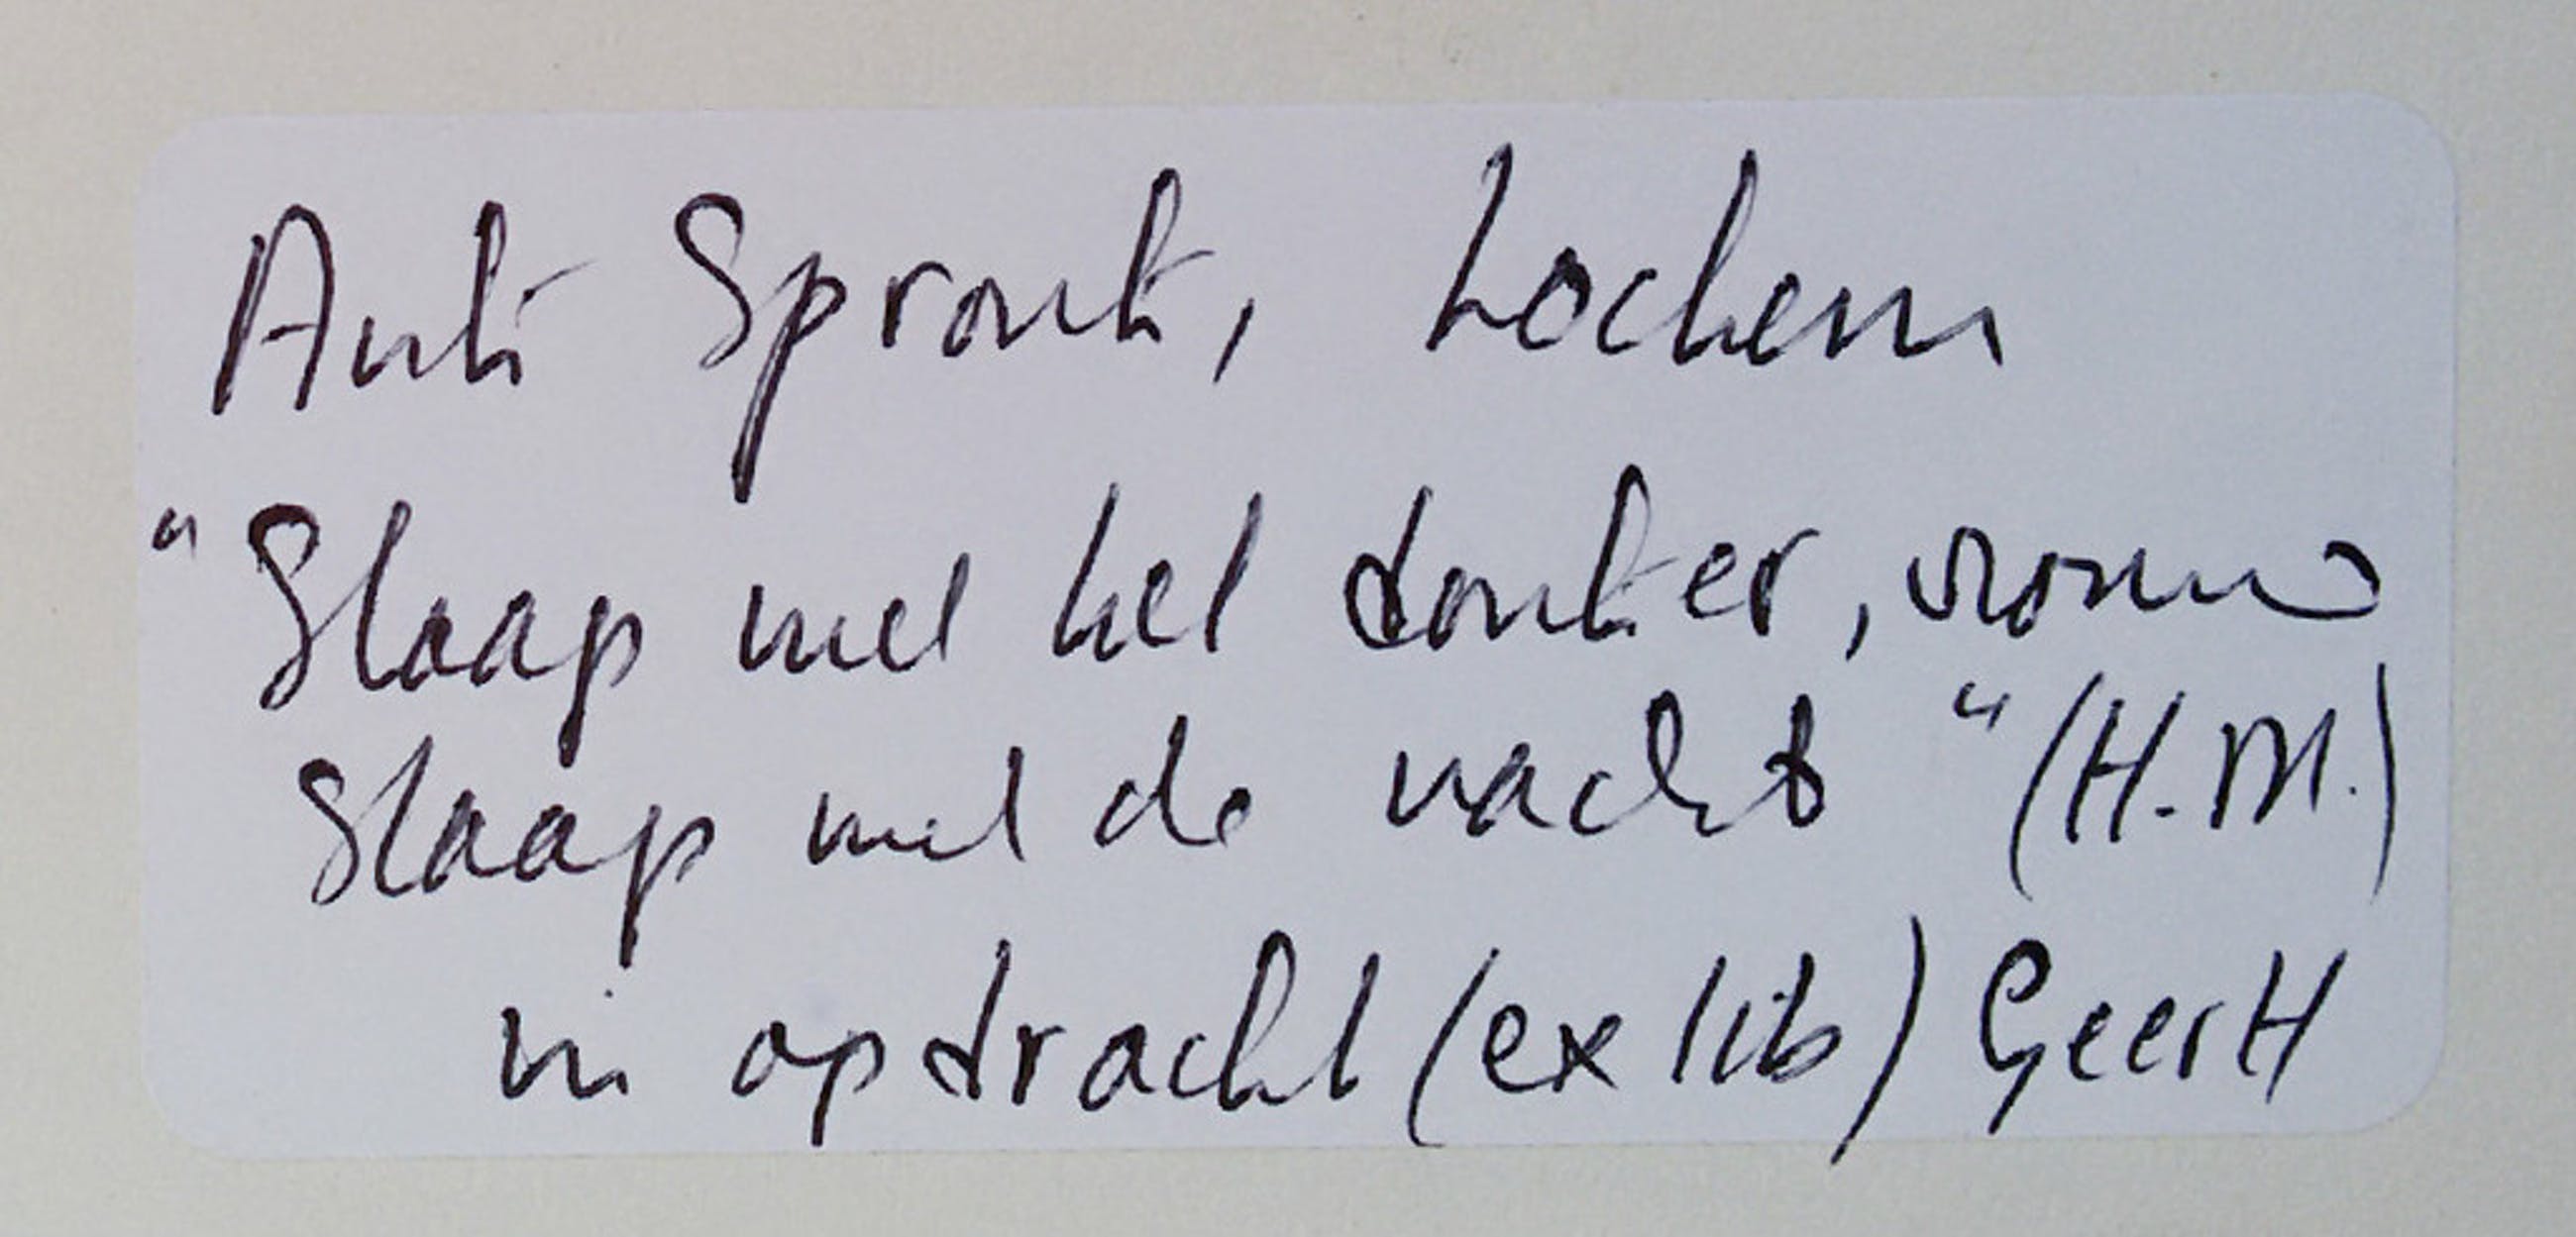 Anti Spronk, Lochem
"Slaap met het donker, vrouw
Slaap met de nacht" (H.M.)
in opdracht (ex lib) GeerH